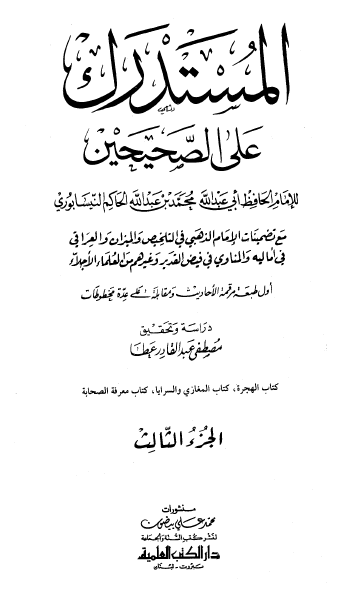 المستدرك
على الصحيحين
للإمام الحافظ أبي عبد الله محمد بن عبد الله الحاكم النيسابوري
مع تضمينات الإمام الذهبي في التلخيص والميزان والعراقي
في أماليه والمناوي في فيض القدير وغيرهم من العلماء الأجلاء
أول طبعة مرقمة الأحاديث ومقابلة على عدة مخطوطات
دراسة وتحقيق
مصطفى عبد القادر عطا
كتاب الهجرة، كتاب المغازي والسرايا، كتاب معرفة الصحابة
الجزء الثالث
منشورات
محمد علي بيضون
لنشر كتب السنة والجماعة
دار الكتب العلمية
بيروت - لبنان